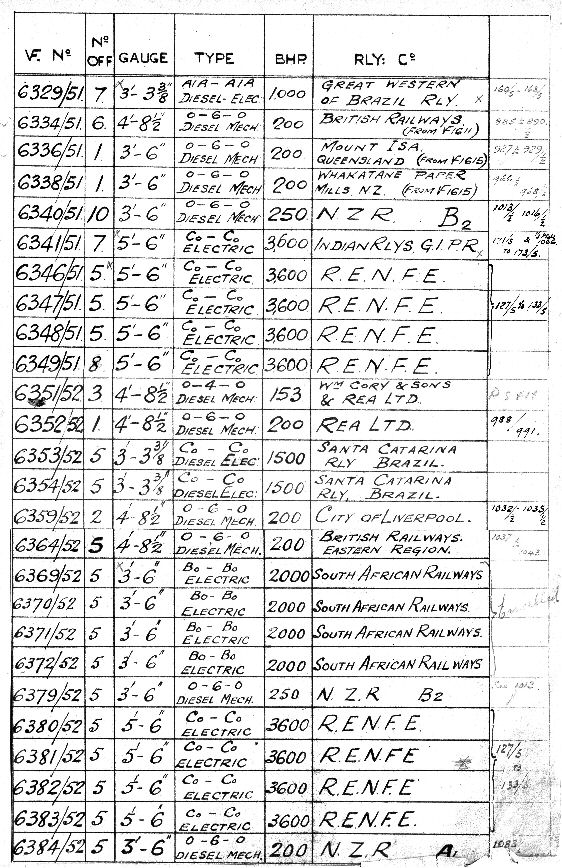 V.F. Nº Nº OFF GAUGE TYPE BHP. RLY: Cº
6329/51. 7. 3'-3 3/8" A1A-A1A DIESEL-ELEC. 1,000 GREAT WESTERN OF BRAZIL RLY. x
6334/51. 6. 4'-8½" 0-6-0 DIESEL MECH 200 BRITISH RAILWAYS. (FROM F1611)
6336/51. 1. 3'-6" 0-6-0 DIESEL MECH. 200. MOUNT ISA, QUEENSLAND (FROM F1615)
6338/51 1. 3'-6" 0-6-0 DIESEL MECH 200 WHAKATANE PAPER MILLS. NZ. (FROM F1615)
6340/51. 10 3'-6" 0-6-0 DIESEL MECH 250 N Z R. B2
6341/51 7 5'-6" Co-Co ELECTRIC 3,600 INDIAN RLYS. G.I.P.R. x 171/5 TO 173/5.
6346/51 5. 5'-6" Co-Co ELECTRIC. 3,600 R.E.N.F.E.
6347/51 5. 5'-6" Co-Co ELECTRIC. 3,600 R.E.N.F.E. 127/5 to 133/5
6348/51 5. 5'-6" Co-Co ELECTRIC 3,600 R.E.N.F.E.
6349/51 8. 5'-6" Co-Co ELECTRIC 3600 R.E.N.F.E.
6351/52 3. 4'-8½" 0-4-0 DIESEL MECH. 153 WM CORY & SONS & REA LTD.
6352/52 1. 4'-8½" 0-6-0 DIESEL MECH. 200 REA LTD. 988/991.
6353/52 5 3'-3 3/8" Co-Co DIESEL ELEC. 1500 SANTA CATARINA RLY BRAZIL.
6354/52 5 3'-3 3/8" Co-Co DIESEL ELEC. 1500 SANTA CATARINA RLY, BRAZIL.
6359/52 2 4'-8½" 0-6-0 DIESEL MECH. 200 CITY OF LIVERPOOL.
6364/52 5 4'-8½" 0-6-0 DIESEL MECH. 200 BRITISH RAILWAYS. EASTERN REGION.
6369/52 5 3'-6" Bo-Bo ELECTRIC 2000 SOUTH AFRICAN RAILWAYS
6370/52 5 3'-6" Bo-Bo ELECTRIC 2000 SOUTH AFRICAN RAILWAYS.
6371/52 5 3'-6" Bo-Bo ELECTRIC 2000 SOUTH AFRICAN RAILWAYS.
6372/52 5 3'-6" Bo-Bo ELECTRIC 2000 SOUTH AFRICAN RAILWAYS
6379/52 5 3'-6" 0-6-0 DIESEL MECH. 250 N. Z. R B2
6380/52 5 5'-6" Co-Co ELECTRIC 3600 R.E.N.F.E.
6381/52 5 5'-6" Co-Co ELECTRIC 3600 R.E.N.F.E 127/5
6382/52 5 5'-6" Co-Co ELECTRIC 3600 R.E.N.F.E
6383/52 5 5'-6" Co-Co ELECTRIC 3600 R.E.N.F.E.
6384/52 5 3'-6" 0-6-0 DIESEL MECH. 200 N. Z. R A.